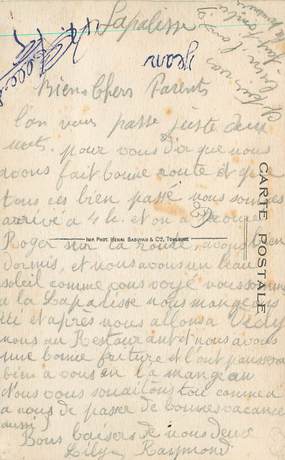 Lapalisse
Biens Chers Parents
l'on vous passe juste deux
mots. pour vous dir que nous
avons fait bonne route et que
tous ces bien passé nous sommes
arrivé a 4 h. et on a
Roger sur la route, avons bien
dormis, et nous avons un beau
soleil comme vous voyé nous sommes
a la Lapalisse nous mangeons
ici et après nous allons a Vichy
nous au Restaurant et nous avons
une bonne friture et l'ont pensseras
bien a vous en la mangean
Nous vous souaitons tou comme
a nous de passer de bonnes vacances
aussi
Bons baisers de nous deux
Lilye Raymond
Jean
CARTE POSTALE
IMP. PHOT. HENRI BASUYAU & Cie, TOULOUSE